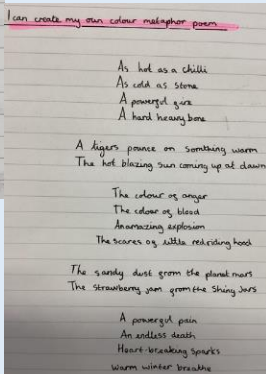 I can create my own colour metaphor poem
As hot as a chilli
As cold as stone
A powerful fire
A hard heavy bone
A tigers pounce on somthing warm
The hot blazing sun coming up at dawn
The colour of anger
The colour of blood
An amazing explosion
The scares of little red riding hood
The sandy dust from the planet mars
The strawberry jam from the shiny Jars
A powerful pain
An endless death
Heart-breaking sparks
Warm winter breathe